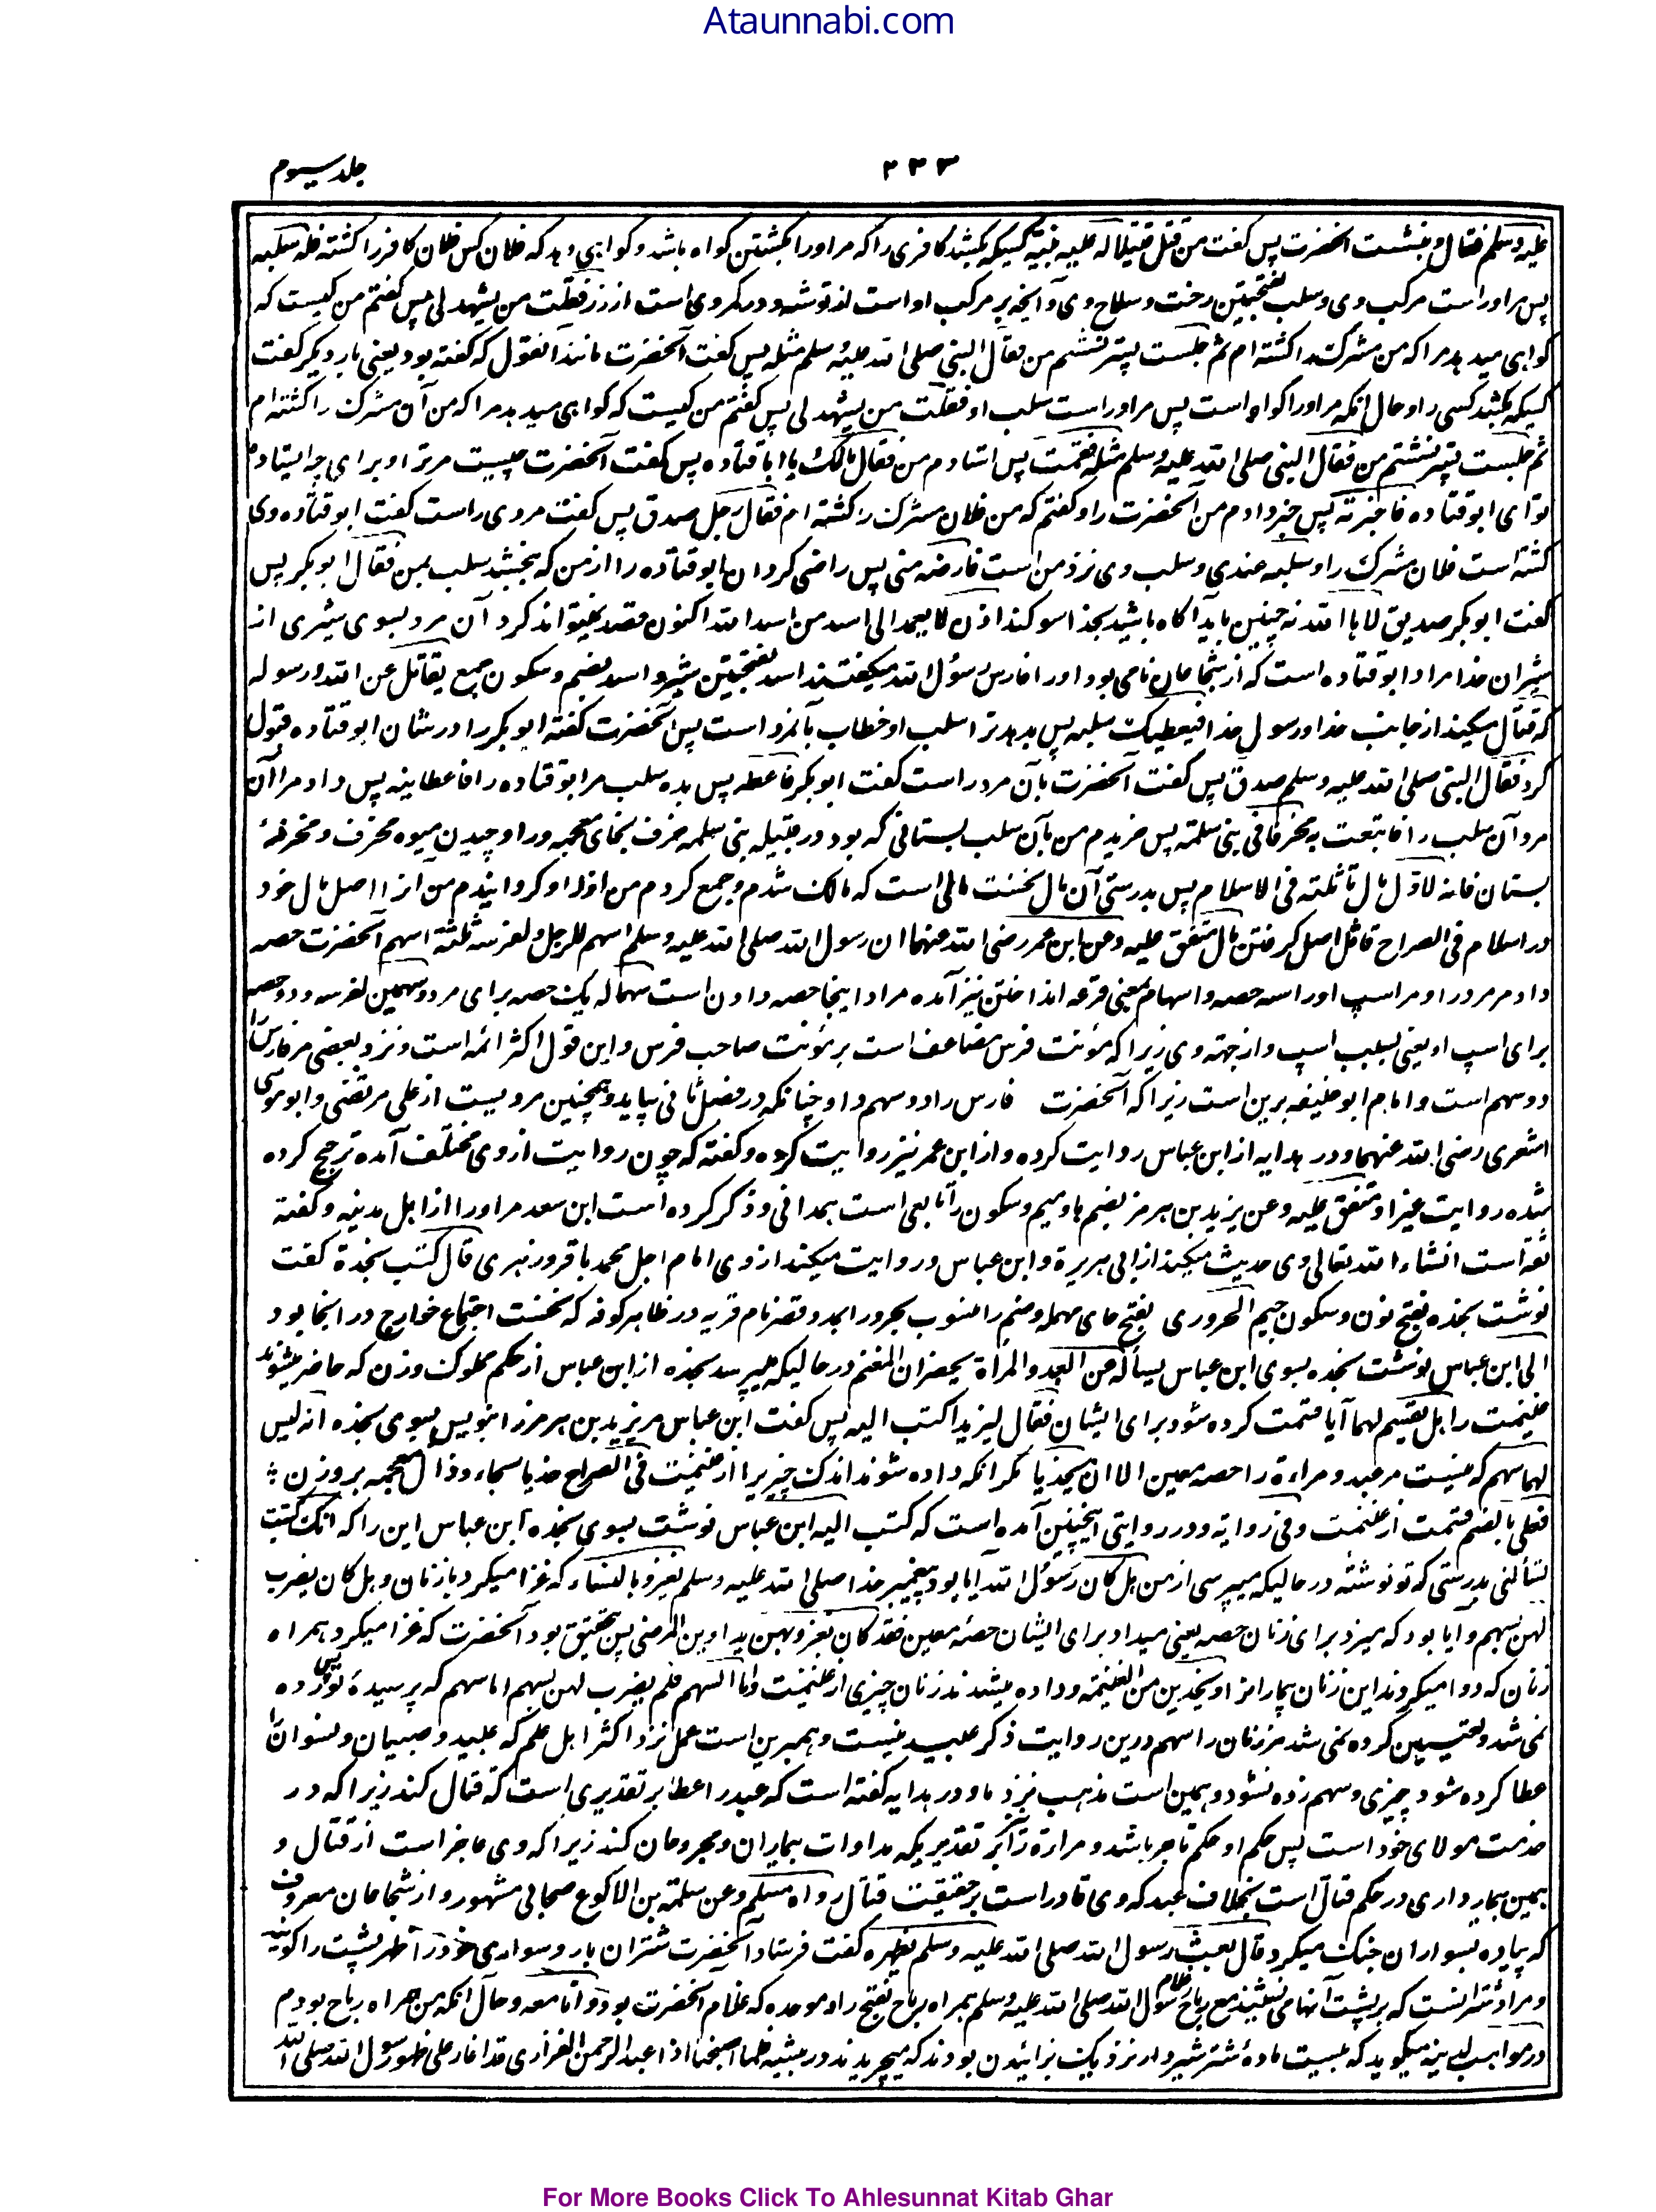 Ataunnabi.com
جلد سیوم
۲۳۳
علیه وسلم فقال و بنشست آنحضرت پس گفت من قتل قتیلا له علیه بینة کسیکه بکشد کافری را که مر او را بکشتن گواه باشد و گواهی دهد که فلان کس فلان کافر را کشته فله سلبه
پس مر او راست مرکب وی و سلب بفتحتین رخت و سلاح وی و آنچه بر مرکب او است از توشه و در کمر وی است از زر فقلت من یشهد لی پس گفتم من کیست که
گواهی میدهد مرا که من مشرک را کشته ام ثم جلست پستر نشستم من فقال النبی صلی الله علیه وسلم مثله پس گفت آنحضرت مانند آنقول که گفته بود یعنی بار دیگر گفت
کسیکه بکشد کسی را و حال آنکه مر او را گواه است پس مر او راست سلب او فقلت من یشهد لی پس گفتم من کیست که گواهی میدهد مرا که من آن مشرک را کشته ام
ثم جلست پستر نشستم من فقال النبی صلی الله علیه وسلم مثله فقمت پس استادم من فقال مالک یا ابا قتاده پس گفت آنحضرت چیست مر ترا و برای چه ایستاده
تو ای ابوقتاده فاخبرته پس خبر دادم من آنحضرت را و گفتم که من فلان مشرک را کشته ام فقال رجل صدق پس گفت مردی راست گفت ابوقتاده وی
کشته است فلان مشرک را و سلبه عندی و سلب وی نزد من است فارضه منی پس راضی گردان ابوقتاده را از من که بخشد سلب بمن فقال ابوبکر پس
گفت ابوبکر صدیق لا ها الله نه چنین باید آگاه باشید بخدا سوگند اذن لا یعمد الی اسد من اسد الله اکنون قصد نخواهد کرد آن مرد بسوی شیری از
شیران خدا مراد ابوقتاده است که از شجاعان نامی بود و او را فارس رسول الله میگفتند اسد بفتحتین شیر و اسد بضم و سکون جمع یقاتل عن الله و رسوله
که قتال میکند از جانب خدا و رسول خدا فیعطیک سلبه پس بدهد ترا سلب او خطاب بآنمرد است پس آنحضرت گفته ابوبکر را در شان ابوقتاده قبول
کرد فقال النبی صلی الله علیه وسلم صدق پس گفت آنحضرت بآن مرد راست گفت ابوبکر فاعطه پس بده سلب مر ابوقتاده را فاعطانیه پس داد مرا آن
مرد آن سلب را فابتعت به مخرفا فی بنی سلمة پس خریدم من بآن سلب بستانی که بود در قبیله بنی سلمه خرف بخای معجمه و را و چیدن میوه مخرف و مخرفۀ
بستان فانه لاول مال تاثلته فی الاسلام پس بدرستی آن مال نخست مالی است که مالک شدم و جمع کردم من او را و گردانیدم من آنرا اصل مال خود
در اسلام فی الصراح تاثل اصل گرفتن مال متفق علیه وعن ابن عمر رضی الله عنهما ان رسول الله صلی الله علیه وسلم اسهم للرجل و لفرسه ثلثة اسهم آنحضرت حصه
داد مر مرد را و مر اسپ او را سه حصه و اسهام بمعنی قرعه انداختن نیز آمده مراد اینجا حصه دادن است سهما له یک حصه برای مرد و سهمین لفرسه و دو حصه
برای اسپ او یعنی بسبب اسپ و از جهته وی زیرا که مؤنت فرس مضاعف است بر مؤنت صاحب فرس و این قول اکثر ائمه است و نزد بعضی مر فارس را
دو سهم است و امام ابوحنیفه برین است زیرا که آنحضرت فارس را دو سهم داد چنانکه در فصل ثانی بیاید و همچنین مرویست از علی مرتضی و ابو موسی
اشعری رضی الله عنهما و در هدایه از ابن عباس روایت کرده و از ابن عمر نیز روایت کرده و گفته که چون روایت از وی مختلف آمده ترجیح کرده
شده روایت غیر او متفق علیه وعن یزید بن هرمز بضم ها و میم و سکون را تابعی است همدانی و ذکر کرده است ابن سعد مر او را از اهل مدینه و گفته
ثقه است انشاء الله تعالی وی حدیث میکند از ابی هریرة و ابن عباس و روایت میکند از وی امام اجل محمد باقر و زهری قال کتب نجدة گفت
نوشت نجده بفتح نون و سکون جیم الحروری بفتح حای مهمله و ضم را منسوب بحرورا بمد و قصر نام قریه در ظاهر کوفه که نخست اجتماع خوارج در آنجا بود
الی ابن عباس نوشت نجده بسوی ابن عباس یسأله عن العبد والمرأة یحضران المغنم در حالیکه میپرسد نجده از ابن عباس از حکم مملوک و زن که حاضر میشوند
غنیمت را هل یقسم لهما آیا قسمت کرده شود برای ایشان فقال لیزید اکتب الیه پس گفت ابن عباس مر یزید بن هرمز را بنویس بسوی نجده انه لیس
لهما سهم که نیست مر عبد و مراءة را حصه معین الا ان یحذیا مگر آنکه داده شوند اندک چیزی را از غنیمت فی الصراح حذیا بحاء و ذال معجمه بر وزن
فعلی بالضم قسمت از غنیمت وفی روایة و در روایتی اینچنین آمده است که کتب الیه ابن عباس نوشت بسوی نجده ابن عباس این را که انک کتبت
تسألنی بدرستی که تو نوشتۀ در حالیکه میپرسی از من هل کان رسول الله آیا بود پیغمبر خدا صلی الله علیه وسلم یغزو بالنساء که غزا میکرد با زنان وهل کان یضرب
لهن بسهم و آیا بود که میزد برای زنان حصه یعنی میداد برای ایشان حصۀ معین فقد کان یغزو بهن یداوین المرضی پس بتحقیق بود آنحضرت که غزا میکرد همراه
زنان که دوا میکردند این زنان بیمارانرا و یحذین من الغنیمة و داده میشدند زنان چیزی از غنیمت واما السهم فلم یضرب لهن بسهم اما سهم که پرسیدۀ تو پس زده
نمی شد و تعیین کرده نمی شد مر زنان را سهم درین روایت ذکر عبید نیست و همبرین است عمل نزد اکثر اهل علم که عبید و صبیان و نسوان را
عطا کرده شود چیزی و سهم زده نشود و همین است مذهب نزد ما و در هدایه گفته است که عبد را عطا بر تقدیری است که قتال کند زیرا که در
خدمت مولای خود است پس حکم او حکم تاجر باشد و مراءة را بر تقدیریکه مداوات بیماران و مجروحان کند زیرا که وی عاجز است از قتال و
همین بیمارداری در حکم قتال است بخلاف عبد که وی قادر است بر حقیقت قتال رواه مسلم وعن سلمة بن الاکوع صحابی مشهور و از شجاعان معروف
که پیاده بسواران جنگ میکرد قال بعث رسول الله صلی الله علیه وسلم بظهره گفت فرستاد آنحضرت شتران بار و سواری خود را ظهر پشت را گویند
و مراد شترانست که بر پشت آنها می نشینند مع رباح غلام رسول الله صلی الله علیه وسلم همراه رباح بفتح را و موحده که غلام آنحضرت بود وانا معه و حال آنکه من همراه رباح بودم
در مواهب لدنیه میگوید که بیست مادۀ شتر شیردار نزدیک بزائیدن بودند که میچریدند در بیشه فلما اصبحنا اذا عبدالرحمن الفزاری قد اغار علی ظهر رسول الله صلی الله
For More Books Click To Ahlesunnat Kitab Ghar